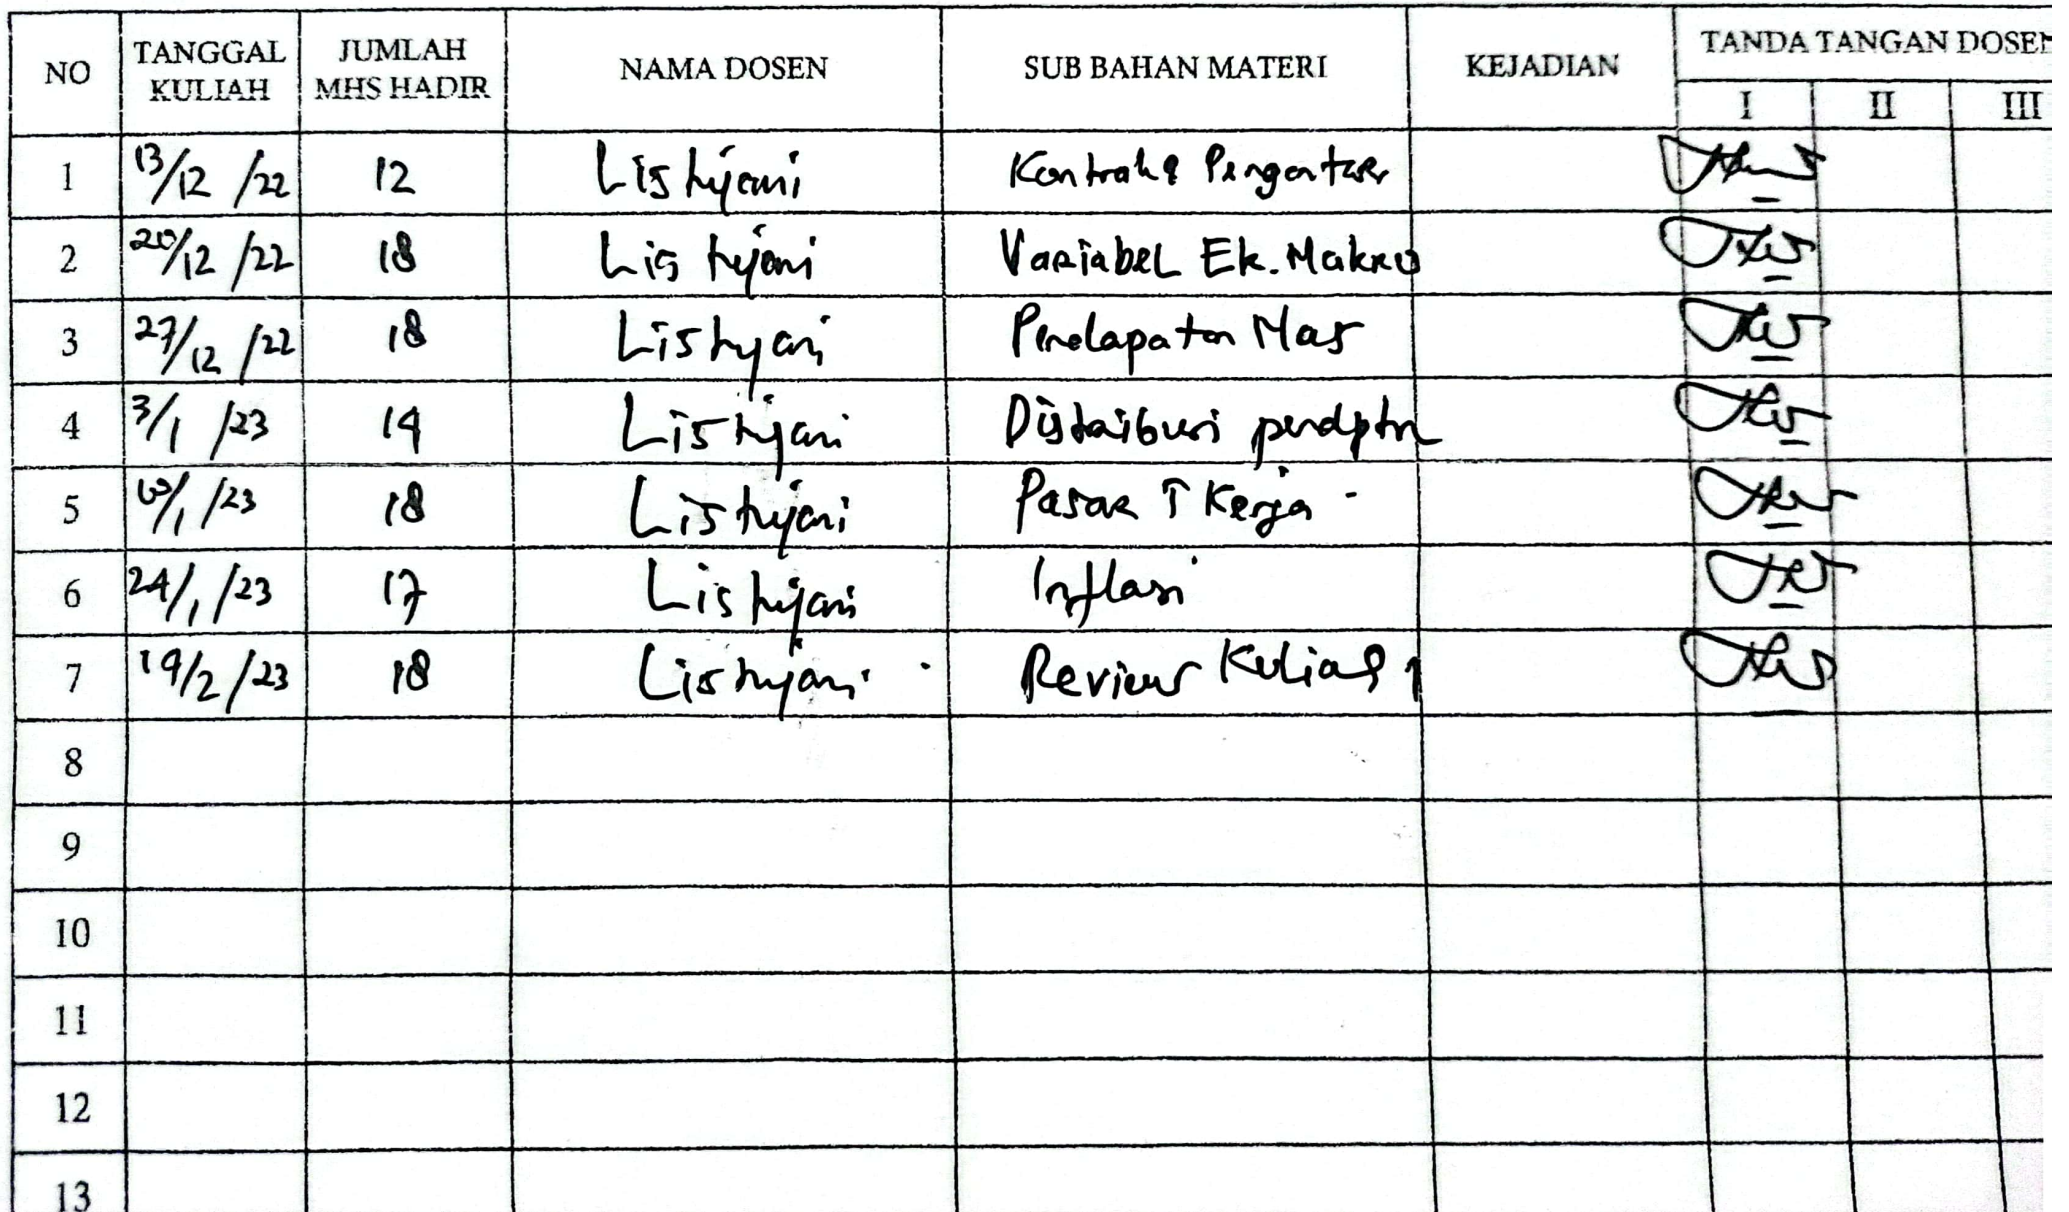 NO TANGGAL KULIAH JUMLAH MHS HADIR NAMA DOSEN SUB BAHAN MATERI KEJADIAN TANDA TANGAN DOSEN
I II III
1 13/12 /22 12 Listijani Kontrak & Pengantar
2 20/12 /22 18 Listijani Variabel Ek. Makro
3 27/12 /22 18 Listyani Pendapatan Mas
4 3/1 /23 14 Listijani Distribusi pendptn
5 /1 /23 18 Listijani Pasar T Kerja
6 24/1 /23 17 Listijani Inflasi
7 /2 /23 18 Listijani Review Kuliah
8
9
10
11
12
13